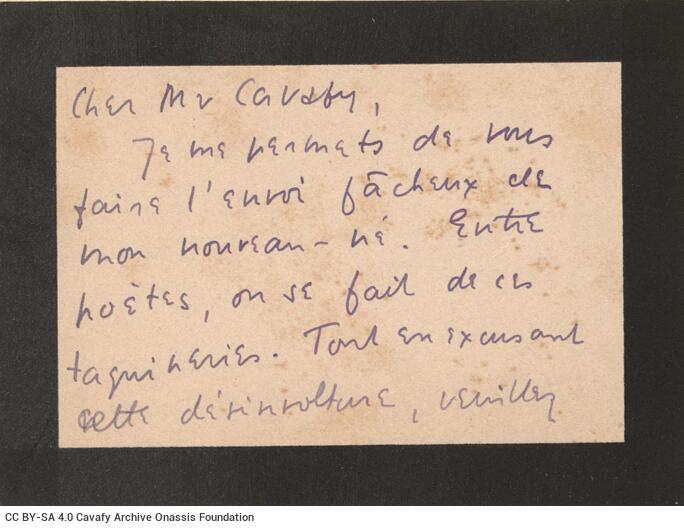 Cher Mr Cavafy,
Je me permets de vous
faire l'envoi fâcheux de
mon nouveau-né. Entre
poètes, on se fait de ces
taquineries. Tout en excusant
cette désinvolture, veuillez
CC BY-SA 4.0 Cavafy Archive Onassis Foundation